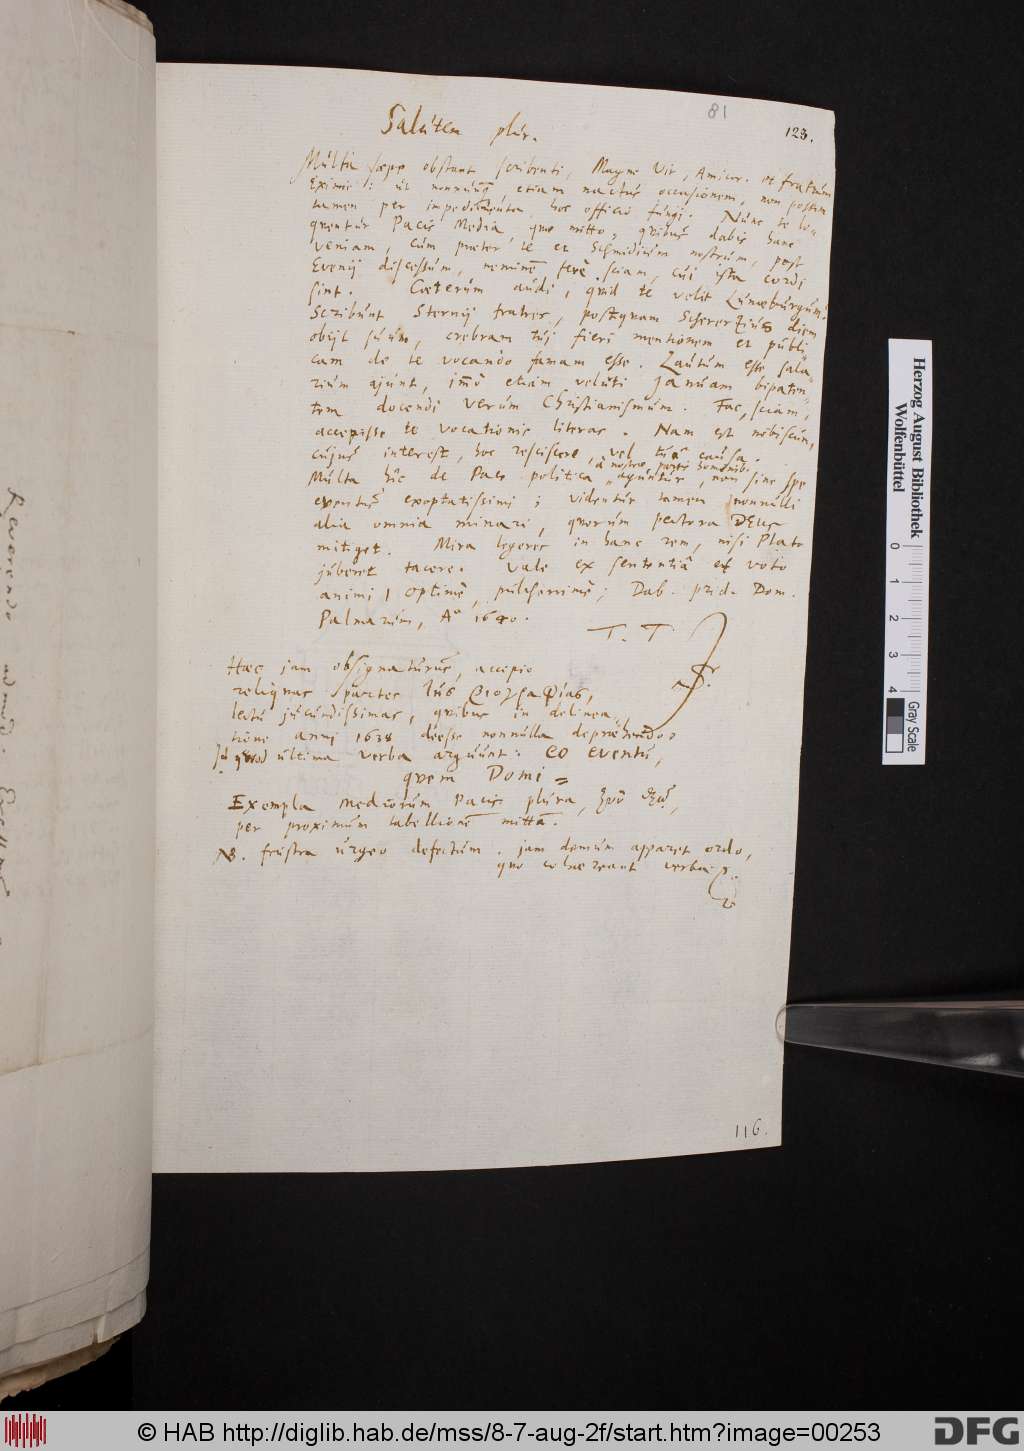 81
123.
Salutem plur.
Multa sæpe obstant scribenti, Magne Vir, Amicor. et fratrum
Eximie: ut nonnunq̃ etiam nactus occasionem, non possim
tamen per impedimenta, hoc officio fungi. Nunc te lo-
quentur Pacis Media, quæ mitto, quibus dabis hanc
veniam, cum præter te et Schmidium nostrum, post
Evenij discessum, neminẽ ferè sciam, cui ista cordi
sint. Cæterum audi, quid te velit Lunæburgum:
Scribunt Sternij fratres, postquam Schererzius diem
obijt suum, crebram tuj fieri mentionem et publi-
cam de te vocando famam esse. Lautum esse sala-
rium ajunt, imò etiam veluti januam bipaten-
tem docendi verum Christianismum. Fac, sciam,
accepisse te vocationis literas. Nam est nobiscum,
cujus interest, hoc resciscere, vel tuâ causa.
Multa hîc de Pace politica à nostræ partis hominib. aguntur, non sine spe
eventus exoptatissimi; videntur tamen nonnulli
alia omnia minari, quorum pectora DEUS
mitiget. Mira legeres in hanc rem, nisi Plato
juberet tacere. Vale ex sententiâ et voto
animi, Optimè, pulcherrimè; Dab. prid. Dom.
Palmarum, Aº 1640.
T. T.
Hæc jam obsignaturus, accipio
reliquas partes
lectu jucundissimas, quibus in delinea-
tione anni 1638 deesse nonnulla deprehendo
quod ultima verba arguunt: eo eventu,
quem Domi=
Exempla Mediorum Pacis plura,
per proximum tabellionẽ mittã.
NB. frustra urgeo defectum. jam demum apparet ordo,
quo cohæreant verba
116.
Reverendo
Herzog August Bibliothek
Wolfenbüttel
0 1 2 3 4
Gray Scale
© HAB http://diglib.hab.de/mss/8-7-aug-2f/start.htm?image=00253
DFG